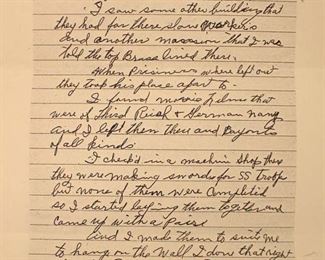 I saw some other building that
they had for there slave workers
And another mansion that I was
told the top Brass lived there.
When Prisoners where left out
they took his place apart to.
I found movie films that
were of Third Reich & German navy
And I left them there and Bayonets
of all kinds
I check'd in a machine shop there
they were making swords for SS Troops
but none of them were Completed
so I started laying them together and
came up with a pair
And I made them to suit me
to hang on the Wall I done that right